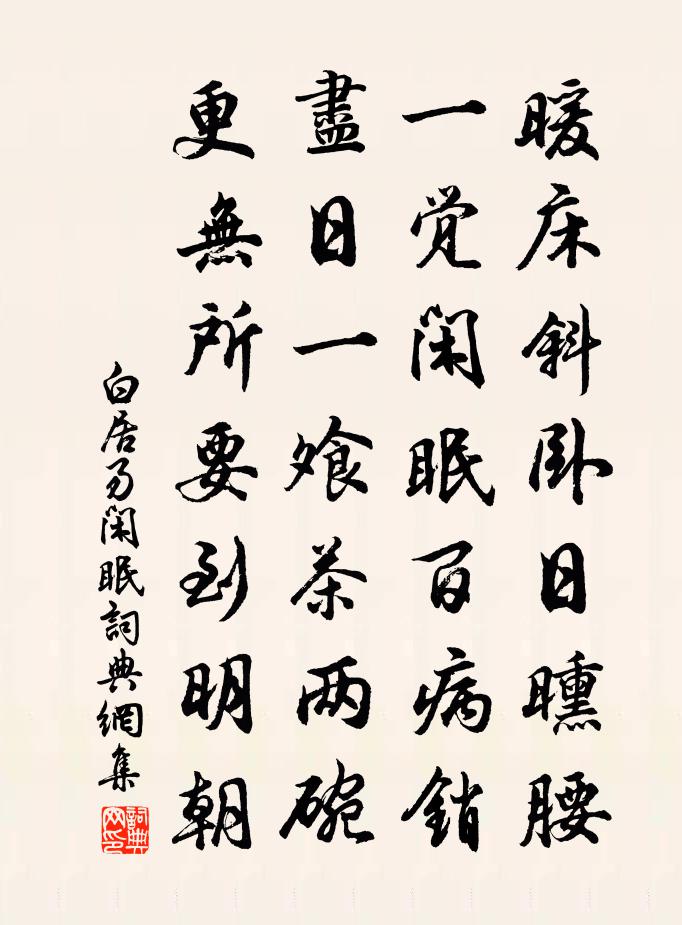 暖床斜卧日曛腰
一觉闲眠百病銷
盡日一飡茶两碗
更無所要到明朝
白居易闲眠詞典網集
詞典
网印